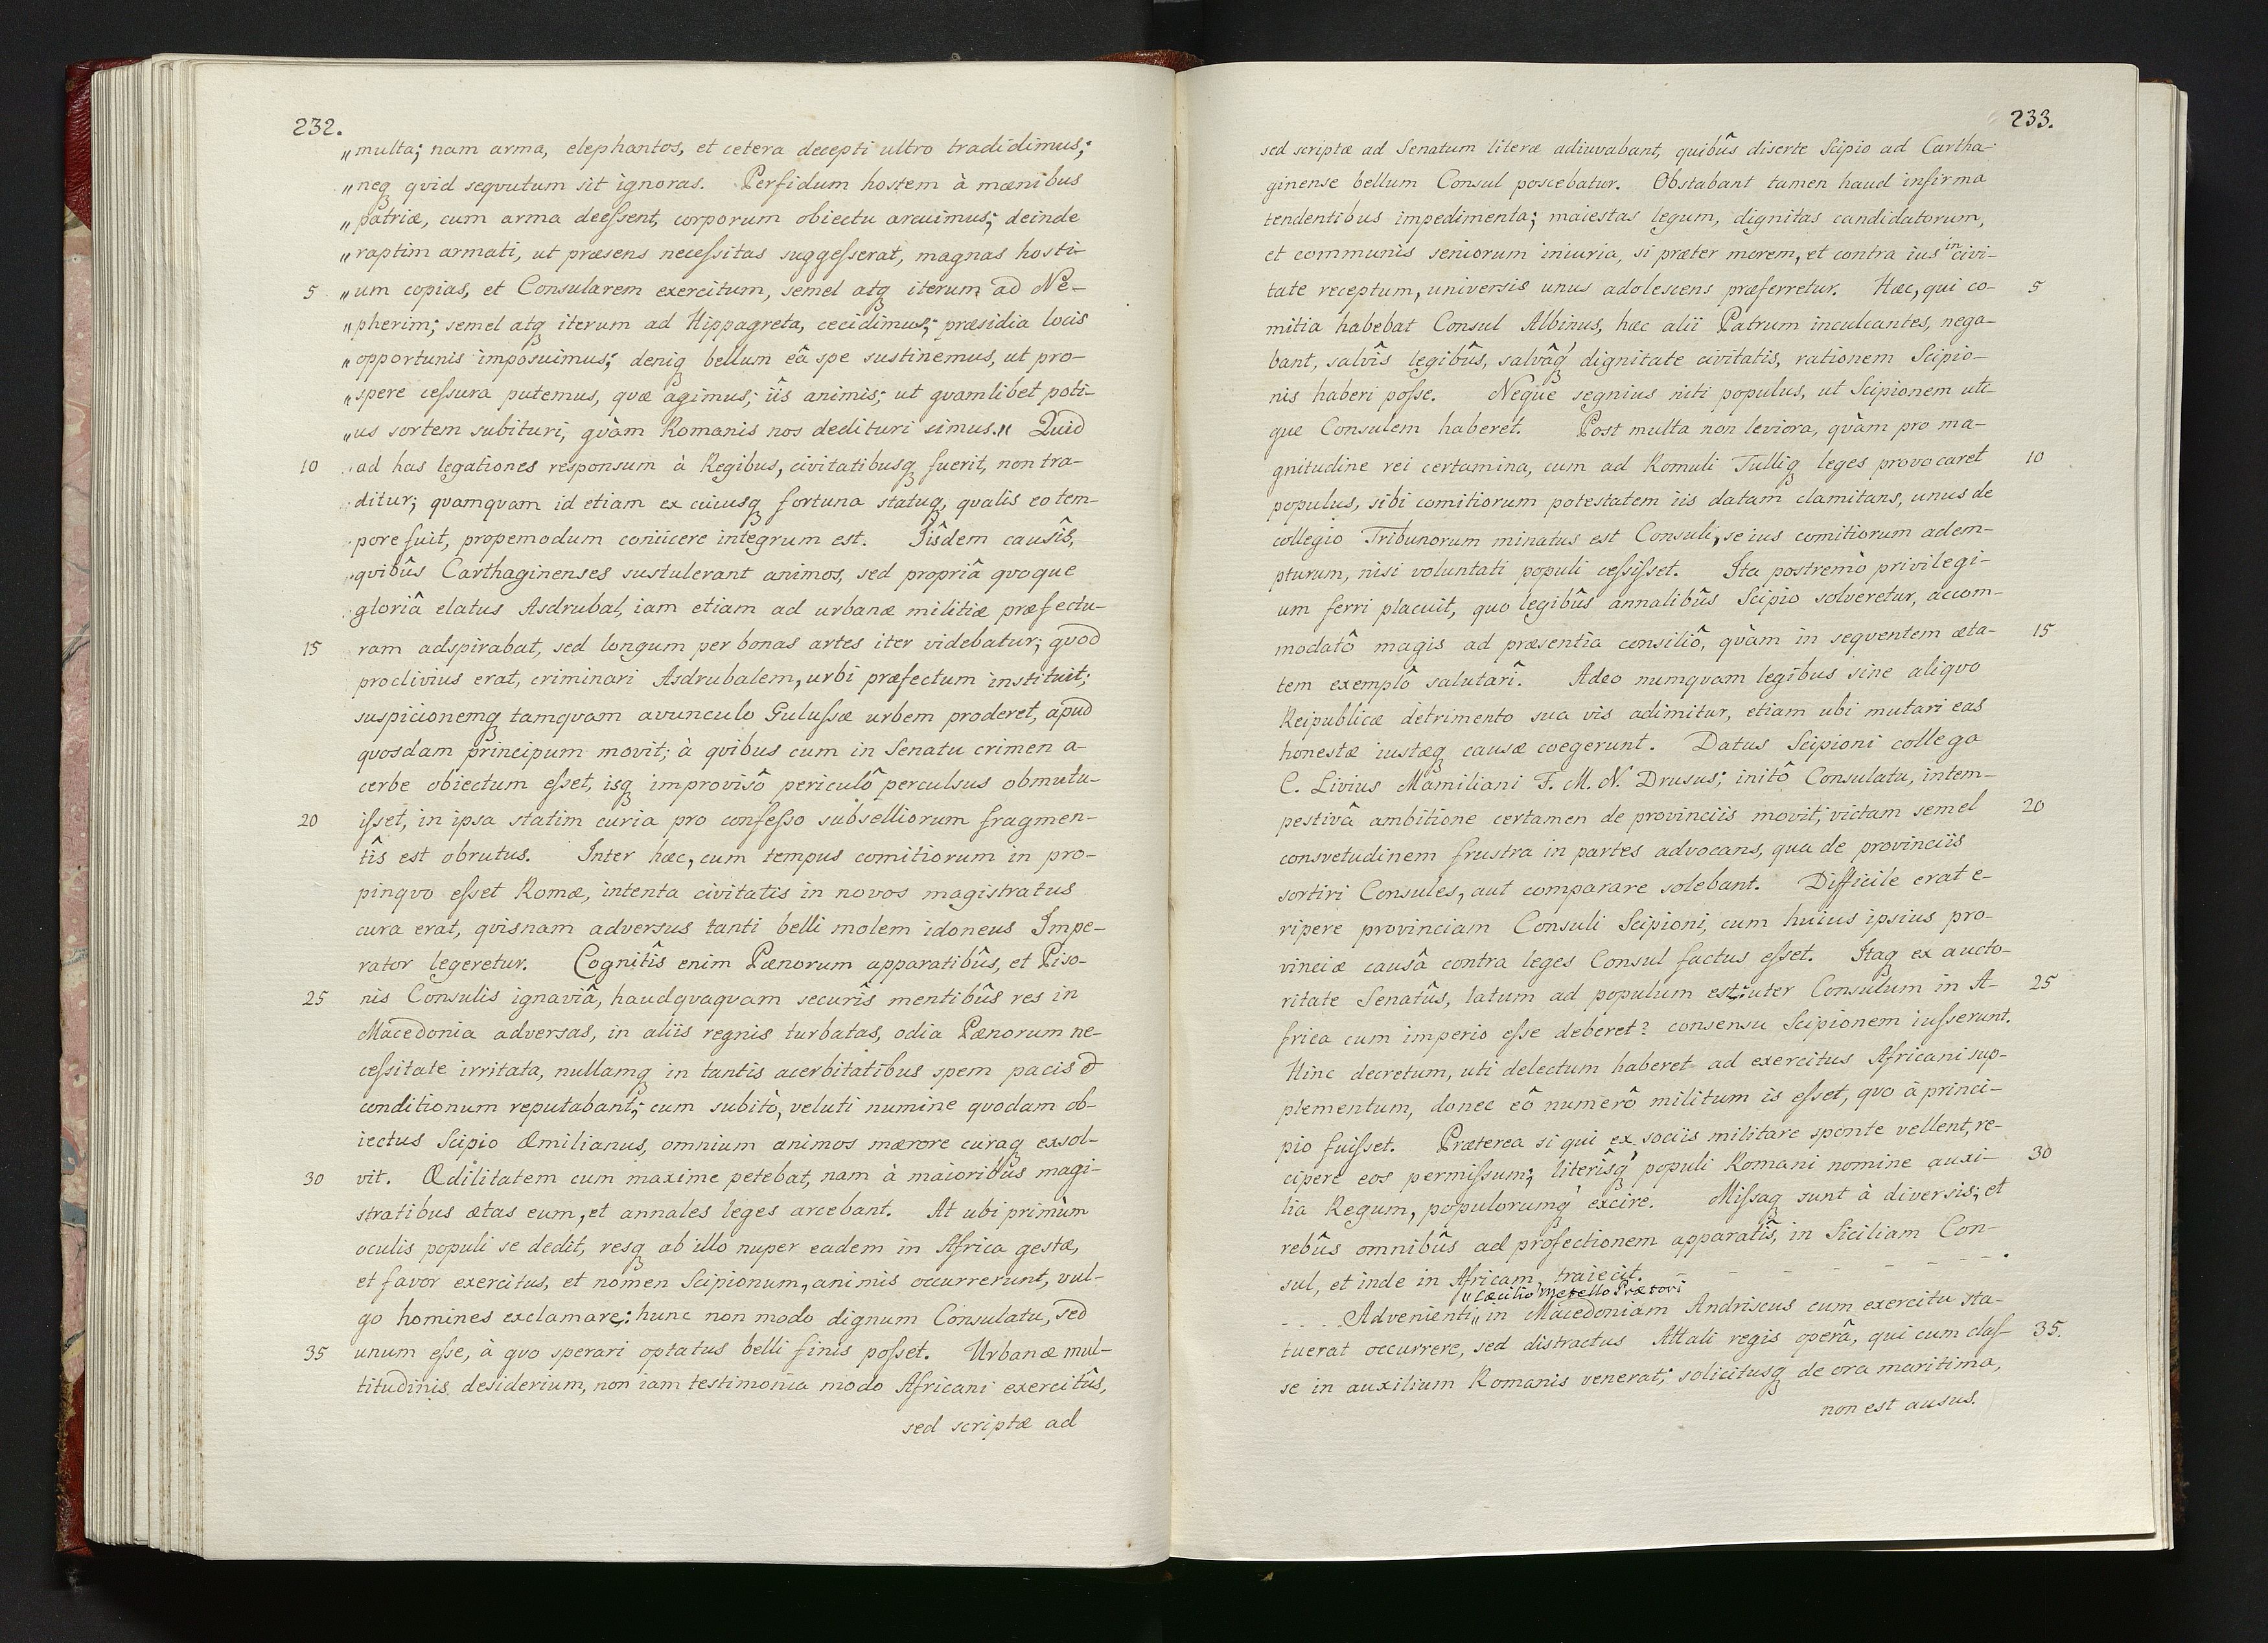 232.
„multa; nam arma, elephantos, et cetera decepti ultro tradidimus;
„neq́ qvid seqvutum sit ignoras. Perfidum hostem à mœnibus
„patriæ, cum arma deeſsent, corporum obiectu arcuimus; deinde
„raptim armati, ut præsens neceſsitas suggeſserat, magnas hosti-
5 „um copias, et Consularem exercitum, semel atq́ iterum ad Ne-
„pherim; semel atq́ iterum ad Hippagreta, cecidimus; præsidia locis
„opportunis imposuimus; deniq́ bellum eâ spe sustinemus, ut pro-
„spere ceſsura putemus, quæ agimus; iîs animis; ut qvamlibet poti-
„us sortem subituri, qvàm Romanis nos dedituri simus.„ Quid
10 ad has legationes responsum à Regibus, civitatibusq́ fuerit, non tra-
ditur; qvamqvam id etiam ex cuiusq́ fortuna statuq́, qvalis eo tem-
pore fuit, propemodum coniicere integrum est. Iîsdem causîs,
qvibûs Carthaginenses sustulerant animos, sed propriâ qvoque
gloriâ elatus Asdrubal, iam etiam ad urbanæ militiæ præfectu-
15 ram adspirabat, sed longum per bonas artes iter videbatur; qvod
proclivius erat, criminari Asdrubalem, urbi præfectum instituit;
suspicionemq́ tamqvam avunculo Guluſsæ urbem proderet, apud
qvosdam principum movit; à qvibus cum in Senatu crimen a-
cerbe obiectum eſset, isq́ improvisô periculô perculsus obmutu-
20 iſset, in ipsa statim curia pro confeſso subselliorum fragmen-
tîs est obrutus. Inter hæc, cum tempus comitiorum in pro-
pinqvo eſset Romæ, intenta civitatis in novos magistratus
cura erat, qvisnam adversus tanti belli molem idoneus Impe-
rator legeretur. Cognitîs enim Pœnorum apparatibûs, et Piso-
25 nis Consulis ignaviâ, haudqvaqvam securîs mentibûs res in
Macedonia adversas, in aliis regnis turbatas, odia Pœnorum ne-
ceſsitate irritata, nullamq́ in tantis acerbitatibus spem pacis &
conditionum reputabant; cum subitò, veluti numine qvodam ob-
iectus Scipio Æmilianus, omnium animos mærore curaq́ exsol-
30 vit. Ædilitatem cum maxime petebat, nam à maioribus magi-
stratibus ætas eum, et annales leges arcebant. At ubi primùm
oculis populi se dedit, resq́ ab illo nuper eadem in Africa gestæ,
et favor exercitus, et nomen Scipionum, animis occurrerunt, vul-
go homines exclamare: hunc non modo dignum Consulatu, sed
35 unum eſse, à qvo sperari optatus belli finis poſset. Urbanæ mul-
titudinis desiderium, non iam testimonia modo Africani exercitûs,
sed scriptæ ad
233.
sed scriptæ ad Senatum literæ adiuvabant, quibûs diserte Scipio ad Cartha-
ginense bellum Consul poscebatur. Obstabant tamen haud infirma
tendentibus impedimenta; maiestas legum, dignitas candidatorum,
et communis seniorum iniuria, si præter morem, et contra ius in civi-
tate receptum, universis unus adolescens præferretur. Hæc, qui co- 5
mitia habebat Consul Albinus, hæc alii Patrum inculcantes, nega-
bant, salvîs legibûs, salvâq́ dignitate civitatis, rationem Scipio-
nis haberi poſse. Neque segnius niti populus, ut Scipionem uti-
que Consulem haberet. Post multa non leviora, qvàm pro ma-
gnitudine rei certamina, cum ad Romuli Tulliq́ leges provocaret 10
populus, sibi comitiorum potestatem iis datam clamitans, unus de
collegio Tribunorum minatus est Consuli, se ius comitiorum adem-
pturum, nisi voluntati populi ceſsiſset. Ita postremò privilegi-
um ferri placuit, quo legibûs annalibûs Scipio solveretur, accom-
modatô magis ad præsentia consiliô, qvàm in seqventem æta- 15
tem exemplô salutarî. Adeo numqvam legibus sine aliqvo
Reipublicæ detrimento sua vis adimitur, etiam ubi mutari eas
honestæ iustæq́ causæ coegerunt. Datus Scipioni collega
C. Livius Mamiliani F. M. N. Drusus; initô Consulatu, intem-
pestivâ ambitione certamen de provinciis movit, victam semel 20
consvetudinem frustra in partes advocans, qua de provinciis
sortiri Consules, aut comparare solebant. Difficile erat e-
ripere provinciam Consuli Scipioni, cum huius ipsius pro-
vinciæ causâ contra leges Consul factus eſset. Itaq́ ex aucto-
ritate Senatûs, latum ad populum est: uter Consulum in A- 25
frica cum imperio eſse deberet? consensu Scipionem iuſserunt.
Hinc decretum, uti delectum haberet ad exercitus Africani sup-
plementum, donec eô numerô militum is eſset, qvo à princi-
pio fuiſset. Præterea si qui ex sociis militare sponte vellent, re-
cipere eos permiſsum; literîsq́ populi Romani nomine auxi- 30
lia Regum, populorumq́ excire. Miſsaq́ sunt à diversis; et
rebûs omnibûs ad profectionem apparatîs, in Siciliam Con-
sul, et inde in Africam, traiecit. - - - - - - - .
„Cæcilio Metello Prætori
- . . . Advenienti„ in Macedoniam Andriscus cum exercitu sta-
tuerat occurrere, sed distractus Attali regis operâ, qui cum claſ- 35.
se in auxilium Romanis venerat; solicitusq́ de ora maritima,
non est ausus.